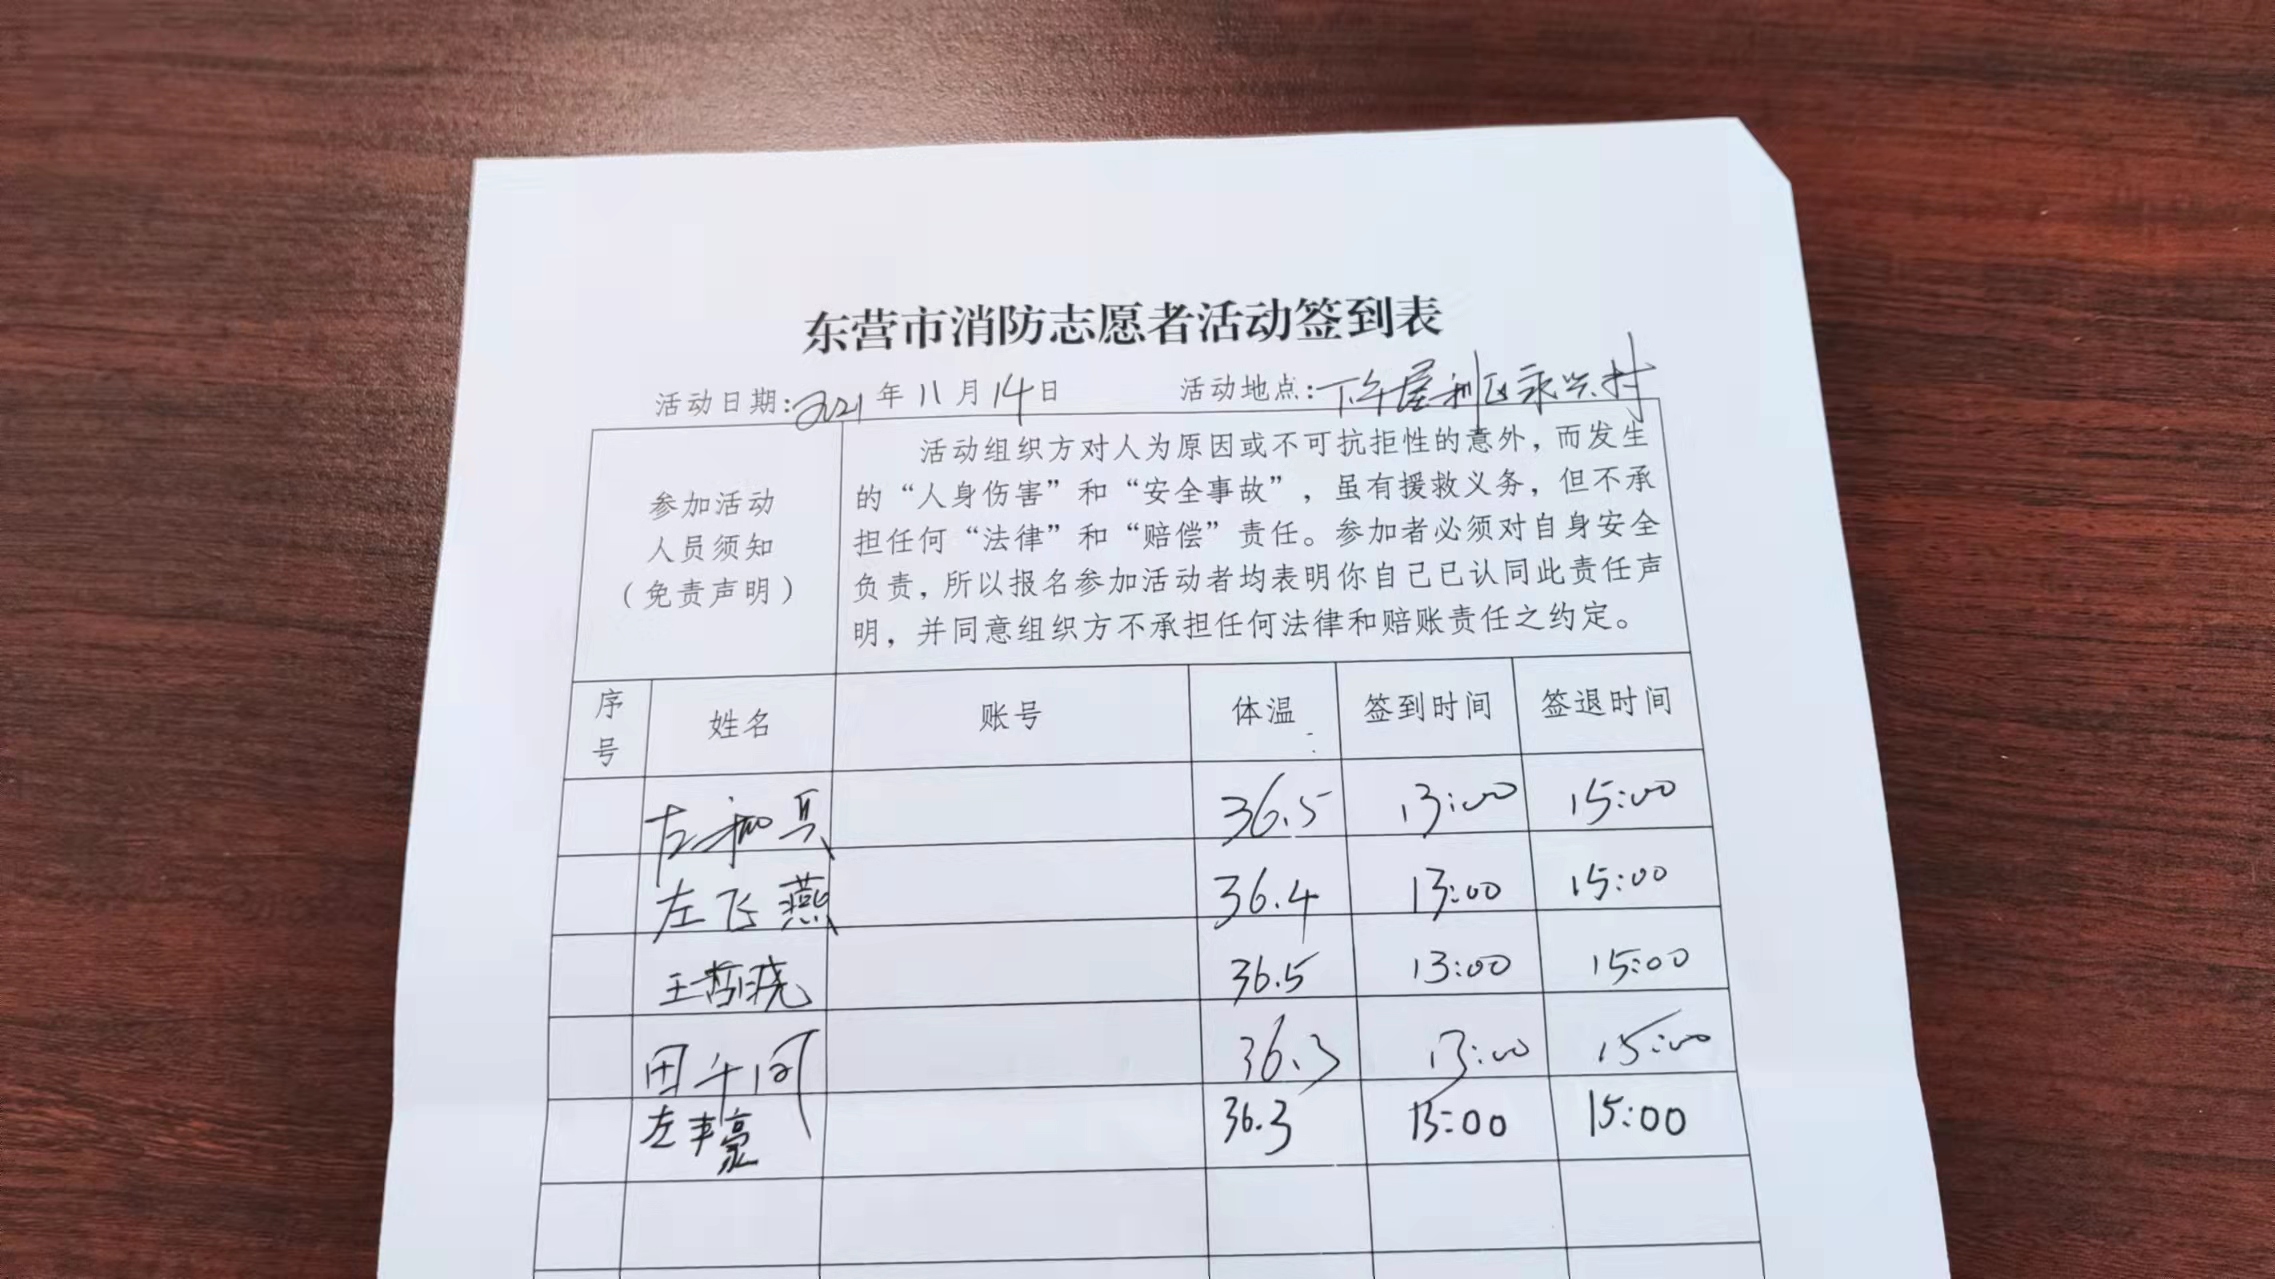 东营市消防志愿者活动签到表
活动日期:2021年11月14日 活动地点:下午垦利区永兴村
参加活动
人员须知
（免责声明）
活动组织方对人为原因或不可抗拒性的意外，而发生
的“人身伤害”和“安全事故”，虽有援救义务，但不承
担任何“法律”和“赔偿”责任。参加者必须对自身安全
负责，所以报名参加活动者均表明你自己已认同此责任声
明，并同意组织方不承担任何法律和赔账责任之约定。
序号 姓名 账号 体温 签到时间 签退时间
左 36.5 13:00 15:00
左飞燕 36.4 13:00 15:00
王哲晓 36.5 13:00 15:00
田午 36.3 13:00 15:00
左丰豪 36.3 13:00 15:00